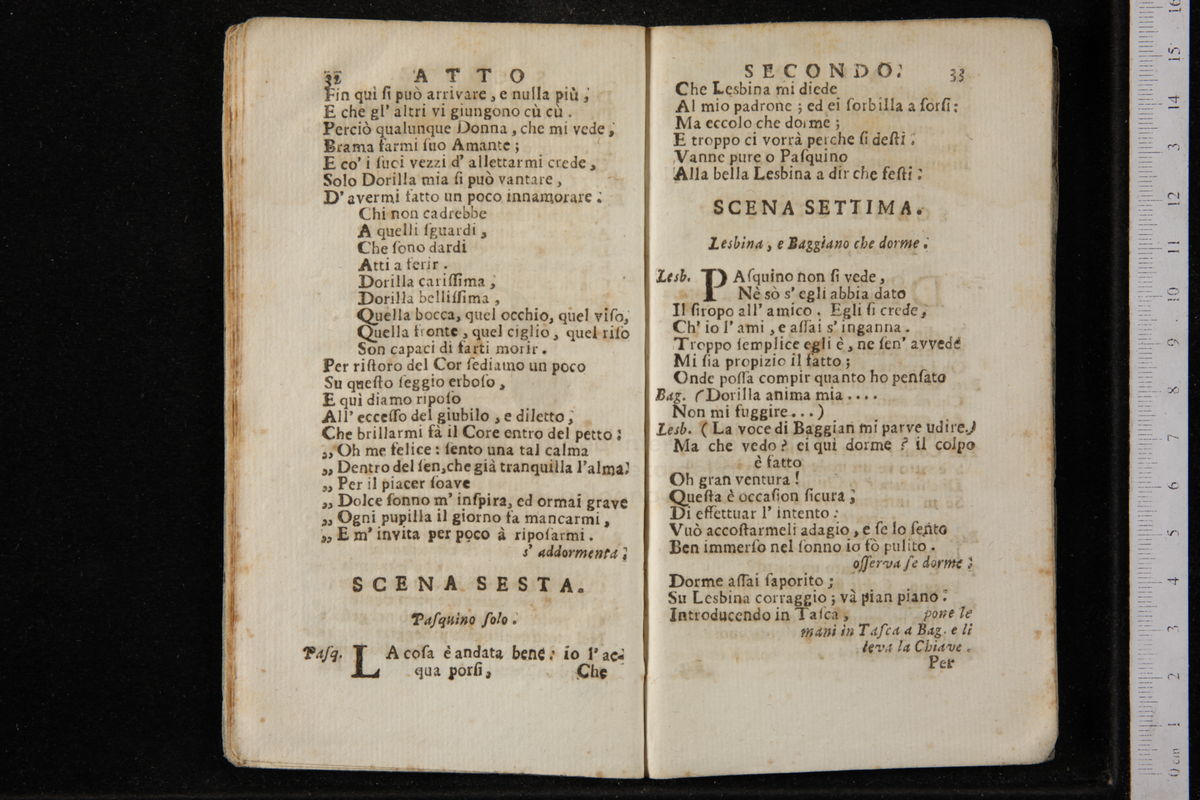 32 ATTO
Fin quì ſi può arrivare, e nulla più;
E che gl' altri vi giungono cù cù.
Perciò qualunque Donna, che mi vede,
Brama farmi ſuo Amante;
E co' i ſuoi vezzi d' allettarmi crede,
Solo Dorilla mia ſi può vantare,
D' avermi fatto un poco innamorare.
Chi non cadrebbe
A quelli ſguardi,
Che ſono dardi
Atti a ferir.
Dorilla cariſſima,
Dorilla belliſſima,
Quella bocca, quel occhio, quel viſo,
Quella fronte, quel ciglio, quel riſo
Son capaci di farti morir.
Per riſtoro del Cor ſediamo un poco
Su queſto ſeggio erboſo,
E quì diamo ripoſo
All' ecceſſo del giubilo, e diletto,
Che brillarmi fà il Core entro del petto:
„ Oh me felice: ſento una tal calma
„ Dentro del ſen, che già tranquilla l'alma:
„ Per il piacer ſoave
„ Dolce ſonno m' inſpira, ed ormai grave
„ Ogni pupilla il giorno fa mancarmi,
„ E m' invita per poco à ripoſarmi.
s' addormenta;
SCENA SESTA.
Paſquino ſolo.
Paſq. LA coſa è andata bene: io l'ac-
qua porſi, Che
SECONDO. 33
Che Lesbina mi diede
Al mio padrone; ed ei ſorbilla a ſorſi:
Ma eccolo che dorme;
E troppo ci vorrà perche ſi deſti.
Vanne pure o Paſquino
Alla bella Lesbina a dir che feſti.
SCENA SETTIMA.
Lesbina, e Baggiano che dorme.
Lesb. PAſquino non ſi vede,
Nè sò s' egli abbia dato
Il ſiropo all' amico. Egli ſi crede,
Ch' io l' ami, e aſſai s' inganna.
Troppo ſemplice egli è, ne ſen' avvede
Mi ſia propizio il fatto;
Onde poſſa compir quanto ho penſato
Bag. (Dorilla anima mia....
Non mi fuggire...)
Lesb. (La voce di Baggian mi parve udire.)
Ma che vedo? ei quì dorme? il colpo
è fatto
Oh gran ventura!
Queſta è occaſion ſicura;
Di effettuar l' intento:
Vuò accoſtarmeli adagio, e ſe lo ſento
Ben immerſo nel ſonno io fò pulito.
oſſerva ſe dorme:
Dorme aſſai ſaporito;
Su Lesbina corraggio; và pian piano:
Introducendo in Taſca, pone le
mani in Taſca a Bag. e li
leva la Chiave.
Per
0 cm 1 2 3 4 5 6 7 8 9 10 11 12 3 14 15 16